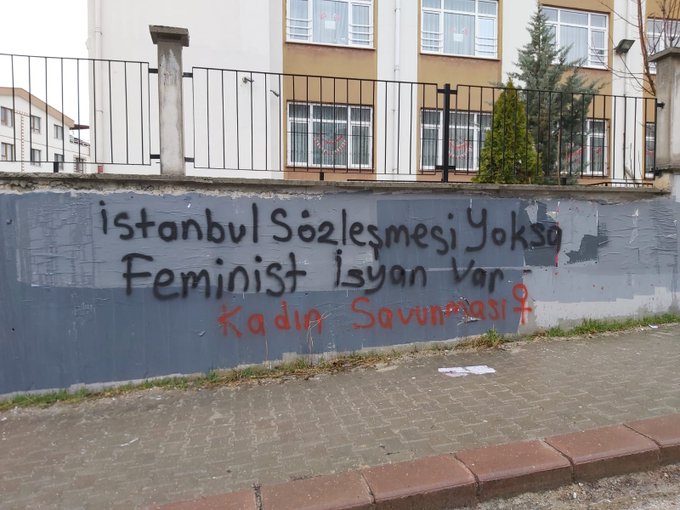 İstanbul Sözleşmesi Yoksa
Feminist İsyan Var -
Kadın Savunması♀